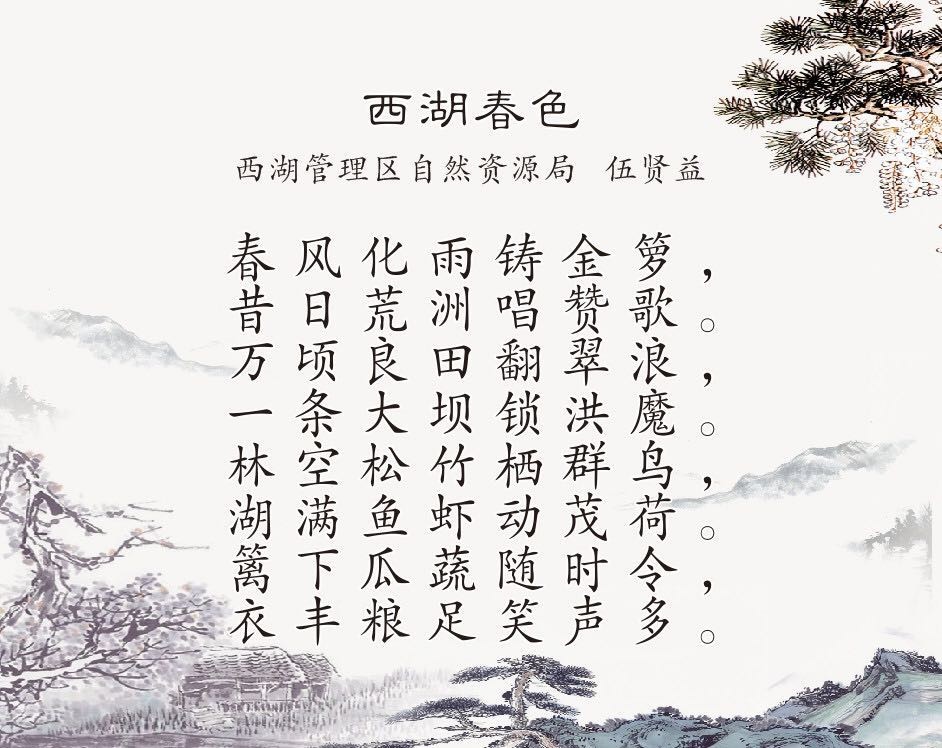 西湖春色
西湖管理区自然资源局 伍贤益
春风化雨铸金箩，
昔日荒洲唱赞歌。
万顷良田翻翠浪，
一条大坝锁洪魔。
林空松竹栖群鸟，
湖满鱼虾动茂荷。
篱下瓜蔬随时令，
衣丰粮足笑声多。